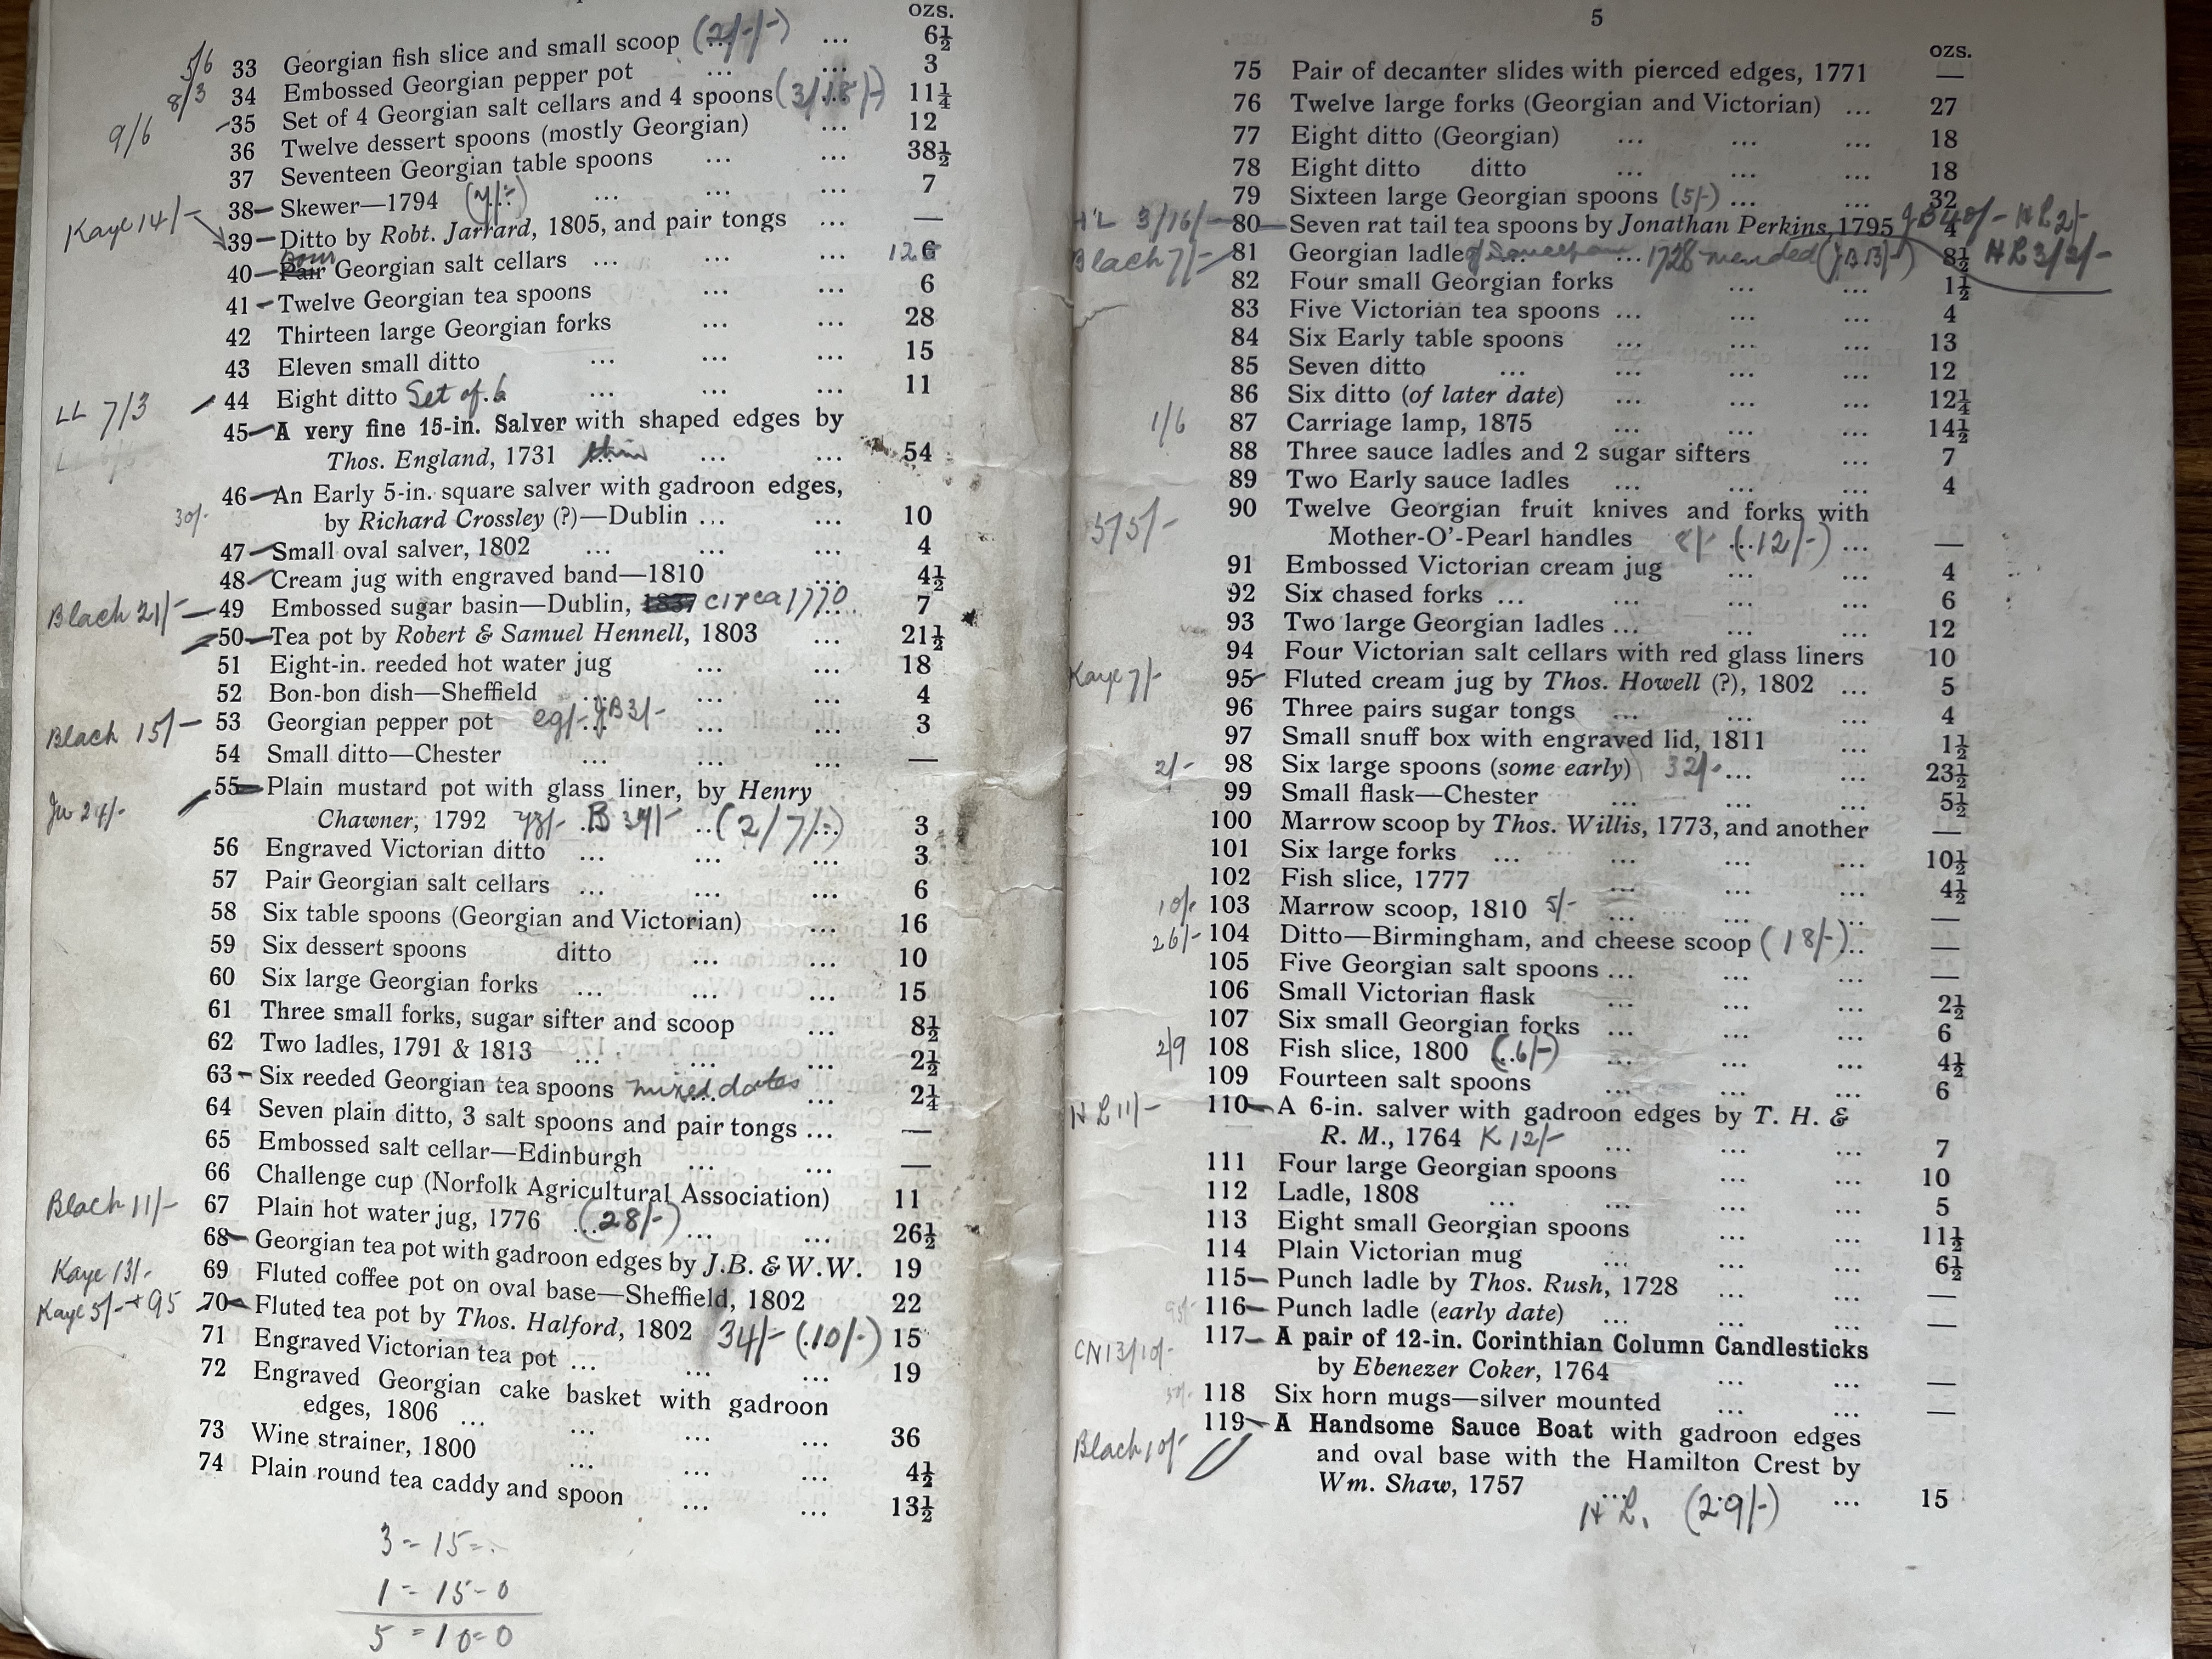 ozs.
5/6 33 Georgian fish slice and small scoop (2/-/-) ... 6½
8/3 34 Embossed Georgian pepper pot ... ... 3
9/6 35 Set of 4 Georgian salt cellars and 4 spoons (3/18/-) 11¼
36 Twelve dessert spoons (mostly Georgian) ... 12
37 Seventeen Georgian table spoons ... ... 38½
38 Skewer—1794 ... ... ... 7
Kaye 14/- 39 Ditto by Robt. Jarrard, 1805, and pair tongs ... —
40 Pair four Georgian salt cellars ... ... ... 12 6
41 Twelve Georgian tea spoons ... ... 6
42 Thirteen large Georgian forks ... ... 28
43 Eleven small ditto ... ... ... 15
LL 7/3 44 Eight ditto Set of 6 ... ... 11
45 A very fine 15-in. Salver with shaped edges by
Thos. England, 1731 thin ... ... 54
46 An Early 5-in. square salver with gadroon edges,
30/- by Richard Crossley (?)—Dublin ... ... 10
47 Small oval salver, 1802 ... ... ... 4
48 Cream jug with engraved band—1810 ... 4½
Blach 21/- 49 Embossed sugar basin—Dublin, 1837 circa 1770 ... 7
50 Tea pot by Robert & Samuel Hennell, 1803 ... 21½
51 Eight-in. reeded hot water jug ... ... 18
52 Bon-bon dish—Sheffield ... ... ... 4
Blach 15/- 53 Georgian pepper pot JB3/- ... ... 3
54 Small ditto—Chester ... ... ... —
55 Plain mustard pot with glass liner, by Henry
24/- Chawner, 1792 B 34/- (2/7/-) 3
56 Engraved Victorian ditto ... ... ... 3
57 Pair Georgian salt cellars ... ... ... 6
58 Six table spoons (Georgian and Victorian) ... 16
59 Six dessert spoons ditto ... ... 10
60 Six large Georgian forks ... ... ... 15
61 Three small forks, sugar sifter and scoop ... 8½
62 Two ladles, 1791 & 1813 ... ... ... 2½
63 Six reeded Georgian tea spoons mixed dates ... 2¼
64 Seven plain ditto, 3 salt spoons and pair tongs ... —
65 Embossed salt cellar—Edinburgh ... ... —
66 Challenge cup (Norfolk Agricultural Association) 11
Blach 11/- 67 Plain hot water jug, 1776 (28/-) ... ... 26½
68 Georgian tea pot with gadroon edges by J.B. & W.W. 19
Kaye 13/- 69 Fluted coffee pot on oval base—Sheffield, 1802 22
Kaye 5/- + 95 70 Fluted tea pot by Thos. Halford, 1802 34/- (10/-) 15
71 Engraved Victorian tea pot ... ... ... 19
72 Engraved Georgian cake basket with gadroon
edges, 1806 ... ... ... ... 36
73 Wine strainer, 1800 ... ... ... 4½
74 Plain round tea caddy and spoon ... ... 13½
3 = 15 =
1 = 15 - 0
5 = 10 = 0
5
ozs.
75 Pair of decanter slides with pierced edges, 1771 —
76 Twelve large forks (Georgian and Victorian) ... 27
77 Eight ditto (Georgian) ... ... ... 18
78 Eight ditto ditto ... ... ... 18
79 Sixteen large Georgian spoons (5/-) ... ... 32
HL 3/16/- 80 Seven rat tail tea spoons by Jonathan Perkins, 1795 4 JB 40/- HL 2/-
Blach 7/- 81 Georgian ladle ... 1728 mended (JB 3/-) 8½ HL 3/3/-
82 Four small Georgian forks ... ... 1½
83 Five Victorian tea spoons ... ... ... 4
84 Six Early table spoons ... ... ... 13
85 Seven ditto ... ... ... ... 12
86 Six ditto (of later date) ... ... ... 12¼
1/6 87 Carriage lamp, 1875 ... ... ... 14½
88 Three sauce ladles and 2 sugar sifters ... 7
89 Two Early sauce ladles ... ... ... 4
90 Twelve Georgian fruit knives and forks with
5/5/- Mother-O'-Pearl handles 8/- (12/-) ... —
91 Embossed Victorian cream jug ... ... 4
92 Six chased forks ... ... ... ... 6
93 Two large Georgian ladles ... ... ... 12
94 Four Victorian salt cellars with red glass liners 10
Kaye 7/- 95 Fluted cream jug by Thos. Howell (?), 1802 ... 5
96 Three pairs sugar tongs ... ... ... 4
97 Small snuff box with engraved lid, 1811 ... 1½
2/- 98 Six large spoons (some early) 32/- ... ... 23½
99 Small flask—Chester ... ... ... 5½
100 Marrow scoop by Thos. Willis, 1773, and another —
101 Six large forks ... ... ... ... 10½
102 Fish slice, 1777 ... ... ... 4½
10/- 103 Marrow scoop, 1810 5/- ... ... ... —
26/- 104 Ditto—Birmingham, and cheese scoop (18/-) ... —
105 Five Georgian salt spoons ... ... ... —
106 Small Victorian flask ... ... ... 2½
107 Six small Georgian forks ... ... ... 6
2/9 108 Fish slice, 1800 (6/-) ... ... ... 4½
109 Fourteen salt spoons ... ... ... 6
HL 11/- 110 A 6-in. salver with gadroon edges by T. H. &
R. M., 1764 K 12/- ... ... ... 7
111 Four large Georgian spoons ... ... 10
112 Ladle, 1808 ... ... ... ... 5
113 Eight small Georgian spoons ... ... 11½
114 Plain Victorian mug ... ... ... 6½
115 Punch ladle by Thos. Rush, 1728 ... ... —
116 Punch ladle (early date) ... ... ... —
117 A pair of 12-in. Corinthian Column Candlesticks
CN 13/10/- by Ebenezer Coker, 1764 ... ... —
118 Six horn mugs—silver mounted ... ... —
119 A Handsome Sauce Boat with gadroon edges
Blach 10/- and oval base with the Hamilton Crest by
Wm. Shaw, 1757 ... ... 15
H L. (2.9/-)